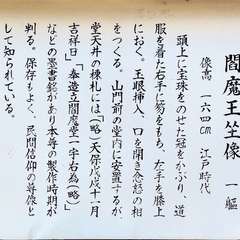 閻魔王坐像 一軀
像高 一六四㎝ 江戸時代
頭上に宝珠をのせた冠をかぶり、道
服を着た右手に笏をもち、左手を膝上
におく。玉眼挿入、口を開き忿怒の相
をつくる。山門前の堂内に安置するが、
堂天井の棟札には(略)「天保戊戌十一月
吉祥日」「奉造立閻魔堂一宇右為(略)」
などの墨書銘があり本尊の製作時期が
判る。保存もよく、民間信仰の尊像と
して知られている。